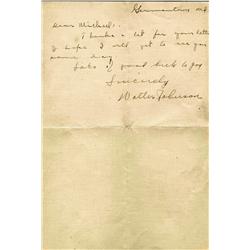 Germantown Md
Dear Michael:
I thanks a lot for your letter
I hope I will get to see you
some day
Lots of good luck to you
Sincerely
Walter Johnson